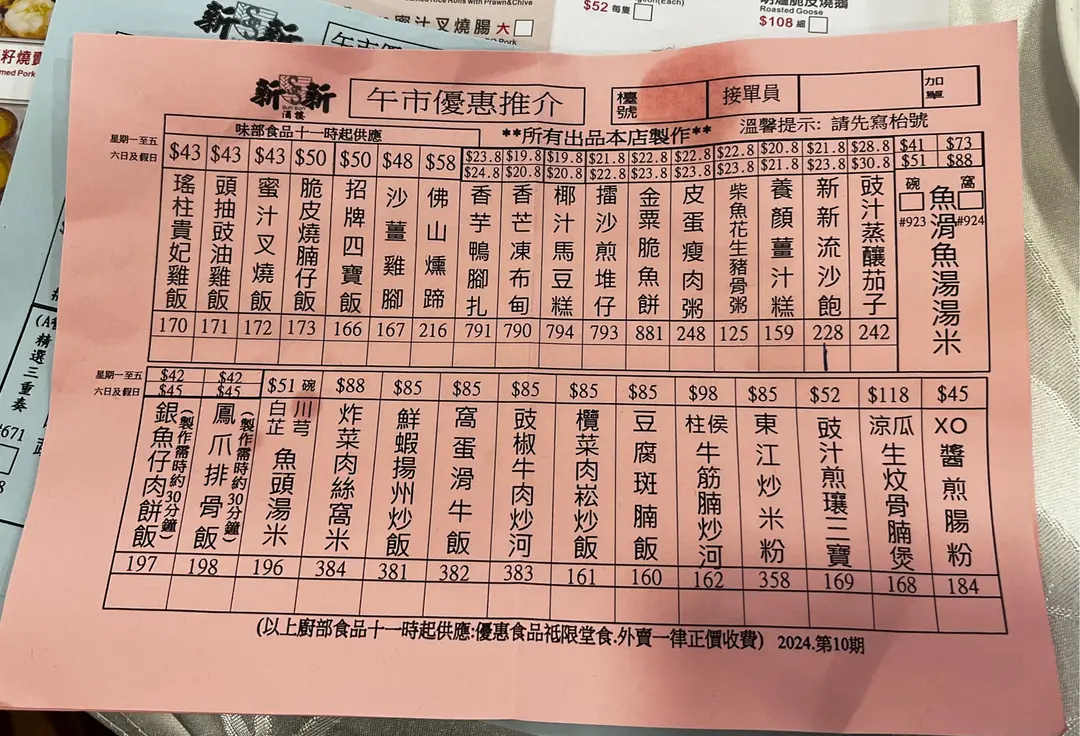 $52 每隻
Roasted Goose
$108 細
蜜汁叉燒腸 大
新新
酒樓
午市優惠推介
檯號
接單員
加單
味部食品十一時起供應
**所有出品本店製作**
溫馨提示: 請先寫枱號
星期一至五
六日及假日
$43 瑤柱貴妃雞飯 170
$43 頭抽豉油雞飯 171
$43 蜜汁叉燒飯 172
$50 脆皮燒腩仔飯 173
$50 招牌四寶飯 166
$48 沙薑雞腳 167
$58 佛山燻蹄 216
$23.8 $24.8 香芋鴨腳扎 791
$19.8 $20.8 香芒凍布甸 790
$19.8 $20.8 椰汁馬豆糕 794
$21.8 $22.8 擂沙煎堆仔 793
$22.8 $23.8 金粟脆魚餅 881
$22.8 $23.8 皮蛋瘦肉粥 248
$22.8 $23.8 柴魚花生豬骨粥 125
$20.8 $21.8 養顏薑汁糕 159
$21.8 $23.8 新新流沙飽 228
$28.8 $30.8 豉汁蒸釀茄子 242
$41 $73
$51 $88
碗 窩
#923 #924
魚滑魚湯湯米
星期一至五
六日及假日
$42 $45 銀魚仔肉餅飯 (製作需時約30分鐘) 197
$42 $45 鳳爪排骨飯 (製作需時約30分鐘) 198
$51 碗 川芎白芷魚頭湯米 196
$88 炸菜肉絲窩米 384
$85 鮮蝦揚州炒飯 381
$85 窩蛋滑牛飯 382
$85 豉椒牛肉炒河 383
$85 欖菜肉崧炒飯 161
$85 豆腐斑腩飯 160
$98 柱侯牛筋腩炒河 162
$85 東江炒米粉 358
$52 豉汁煎瓖三寶 169
$118 涼瓜生炆骨腩煲 168
$45 XO醬煎腸粉 184
(以上廚部食品十一時起供應:優惠食品祗限堂食.外賣一律正價收費) 2024.第10期
精選三重奏
#671